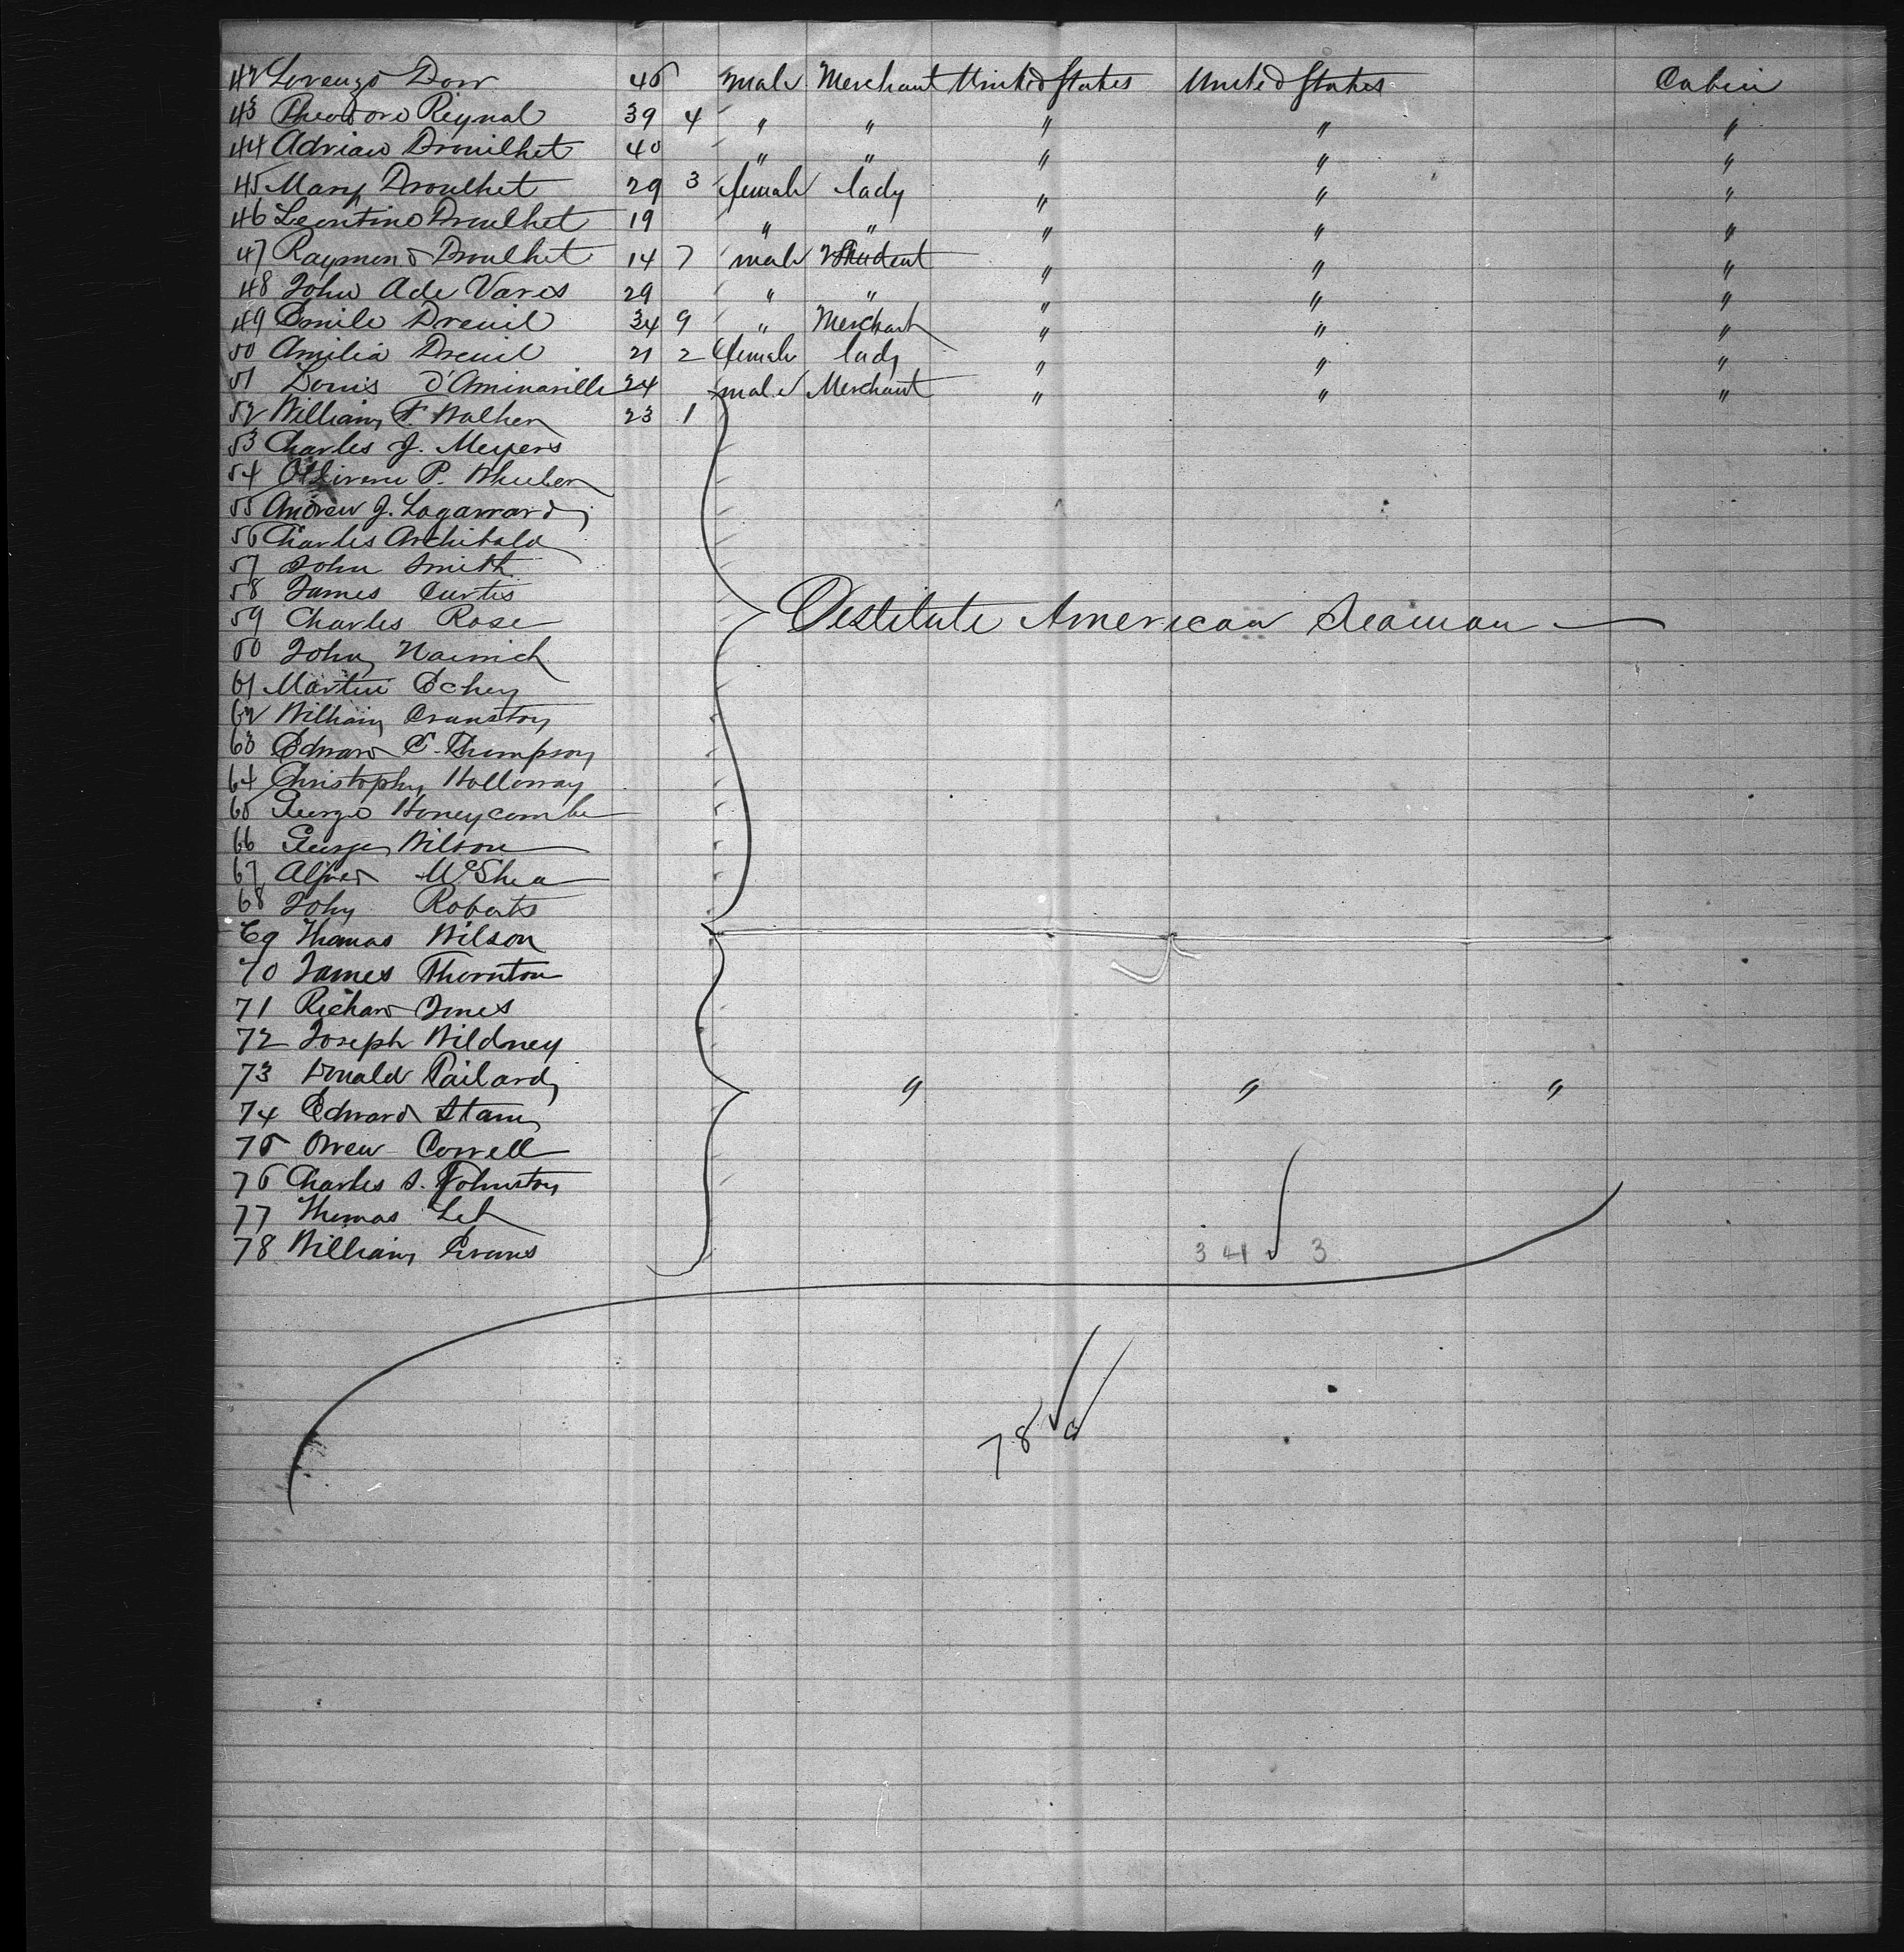 42 Lorenzo Dow 45 male Merchant United States United States Cabin
43 Theodore Reynal 39 4 " " " " "
44 Adrian Drouilhet 40 " " " " "
45 Mary Droulhet 29 3 female lady " " "
46 Leontine Droulhet 19 " " " " "
47 Raymond Droulhet 14 7 male Student " " "
48 John Ade Varis 29 " " " " "
49 Emile Dreuil 34 9 " Merchant " " "
50 Amilia Dreuil 21 2 female lady " " "
51 Louis d'Aminaville 24 male Merchant " " "
52 William F. Walker 23 1
53 Charles J. Meyers
54 P. Wheeler
55 Andrew J. Lagarrard
56 Charles Archibald
57 John Smith
58 James Curtis
59 Charles Rose Destitute American Seaman
60 John
61 Martin Echey
62 William Cranston
63 Edward C. Thompson
64 Christopher Holloway
65 George Honeycombe
66 George Wilson
67 Alfred McShea
68 John Roberts
69 Thomas Wilson
70 James Thornton
71 Richard Jones
72 Joseph Wildney
73 Donald Pailard " " "
74 Edward Stam
75 Orrew Correll
76 Charles S. Johnston
77 Thomas
78 William Evans 3 41 3
78